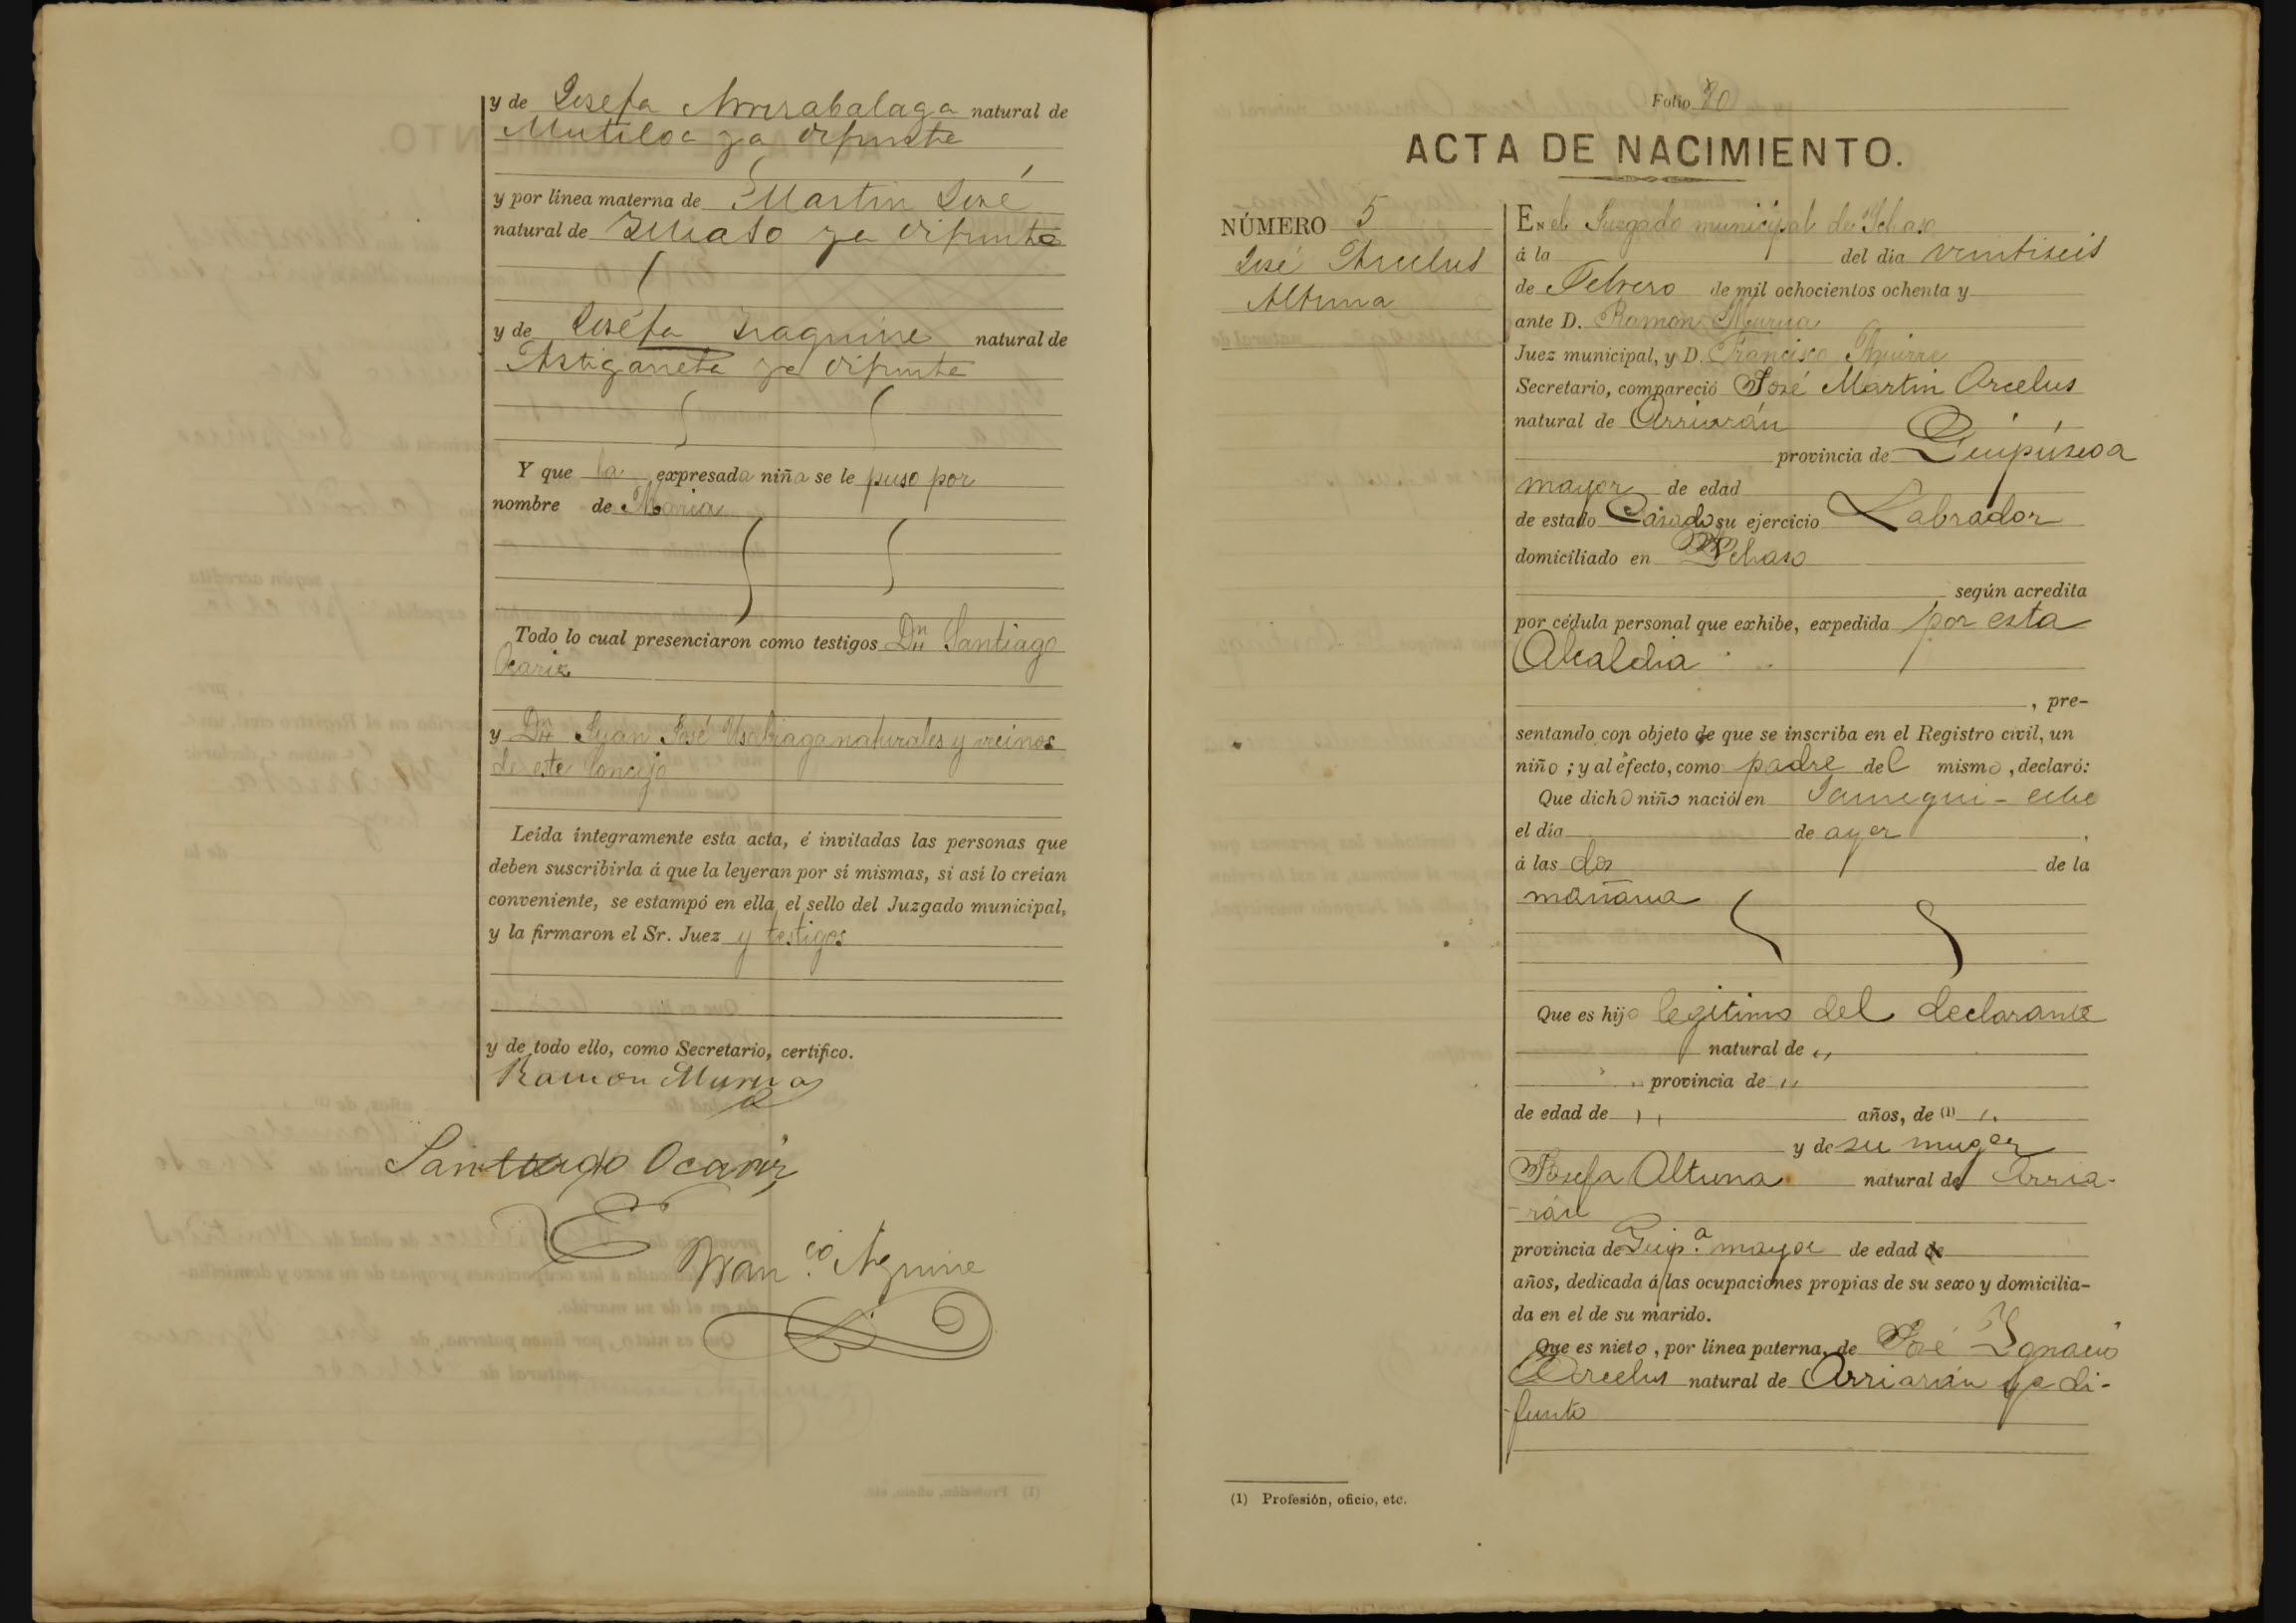 y de Josefa Arrisabalaga natural de
Mutiloa ya difunta
y por línea materna de Martin José
natural de Ichaso ya difunto
y de Josefa Iraguirre natural de
Astigarreta ya difunta
Y que la expresada niña se le puso por
nombre de Maria
Todo lo cual presenciaron como testigos Dn Santiago
Ocariz
y Dn Juan José Usabiaga naturales y vecinos
de este Concejo
Leída íntegramente esta acta, é invitadas las personas que
deben suscribirla á que la leyeran por sí mismas, si así lo creían
conveniente, se estampó en ella el sello del Juzgado municipal,
y la firmaron el Sr. Juez y testigos
y de todo ello, como Secretario, certifico.
Ramon Murua
Santiago Ocariz
Fran.co Aguirre
Folio 20
ACTA DE NACIMIENTO.
NÚMERO 5
José Arcelus
Altuna
En el Juzgado municipal de Ichaso
á la del día veintiseis
de Febrero de mil ochocientos ochenta y
ante D. Ramon Murua
Juez municipal, y D. Francisco Aguirre
Secretario, compareció José Martin Arcelus
natural de Arriarán
provincia de Guipúzcoa
mayor de edad
de estado Casado su ejercicio Labrador
domiciliado en Ichaso
según acredita
por cédula personal que exhibe, expedida por esta
Alcaldia
, pre-
sentando con objeto de que se inscriba en el Registro civil, un
niño ; y al efecto, como padre del mismo , declaró:
Que dicho niño nació en
el día de ayer
á las dos de la
mañana
Que es hijo legitimo del declarante
natural de ,,
,, provincia de ,,
de edad de ,, años, de (1) ,,
y de su muger
Josefa Altuna natural de Arria-
rán
provincia de Guip.a mayor de edad de
años, dedicada á las ocupaciones propias de su sexo y domicilia-
da en el de su marido.
Que es nieto , por línea paterna, de José Ygnacio
Arcelus natural de Arriarán ya di-
funto
(1) Profesión, oficio, etc.